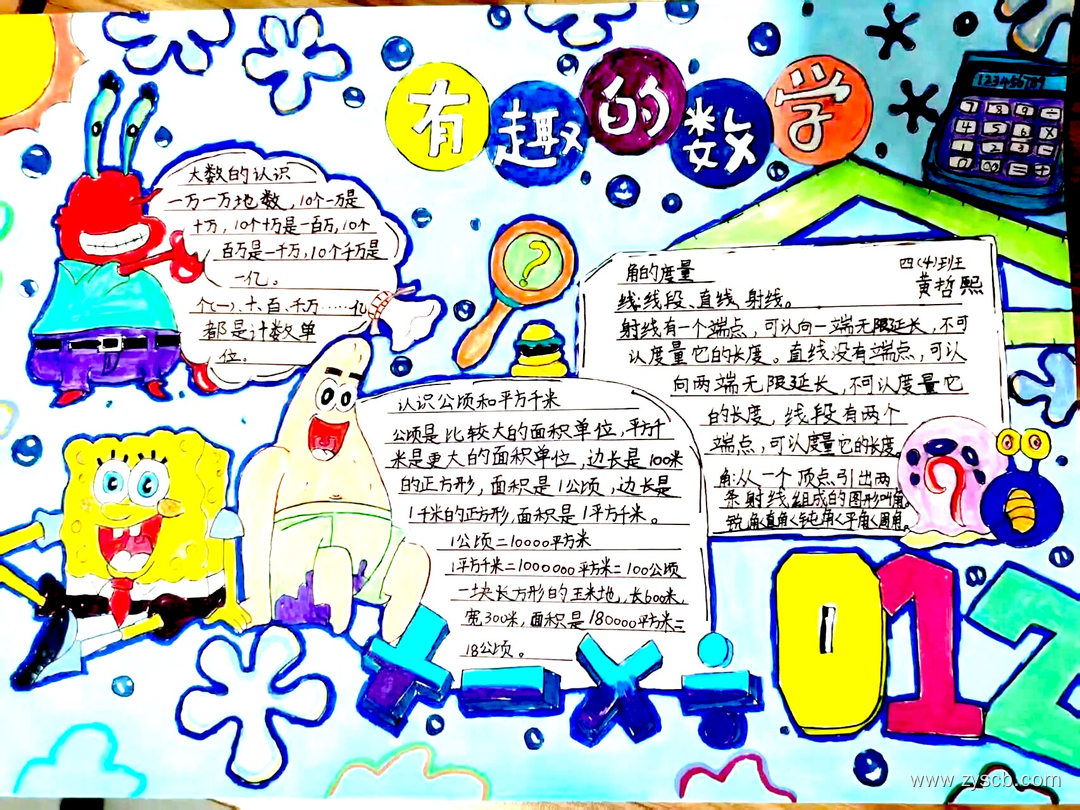 有趣的数学
大数的认识
一万一万地数，10个一万是
十万，10个十万是一百万，10个
百万是一千万，10个千万是
一亿。
个(一)、十、百、千万……亿
都是计数单
位。
认识公顷和平方千米
公顷是比较大的面积单位，平方千
米是更大的面积单位，边长是100米
的正方形，面积是1公顷，边长是
1千米的正方形，面积是1平方千米。
1公顷=10000平方米
1平方千米=1000000平方米=100公顷
一块长方形的玉米地，长600米，
宽300米，面积是180000平方米=
18公顷。
角的度量
四(4)班
黄哲熙
线:线段、直线、射线。
射线有一个端点，可以向一端无限延长，不可
以度量它的长度。直线没有端点，可以
向两端无限延长，不可以度量它
的长度，线段有两个
端点，可以度量它的长度。
角:从一个顶点引出两
条射线组成的图形叫角
锐角<直角<钝角<平角<周角。
123456789
7 8 9 ÷
4 5 6 ×
1 2 3 -
?
+ - × ÷
0 1 2
www.zyscb.com